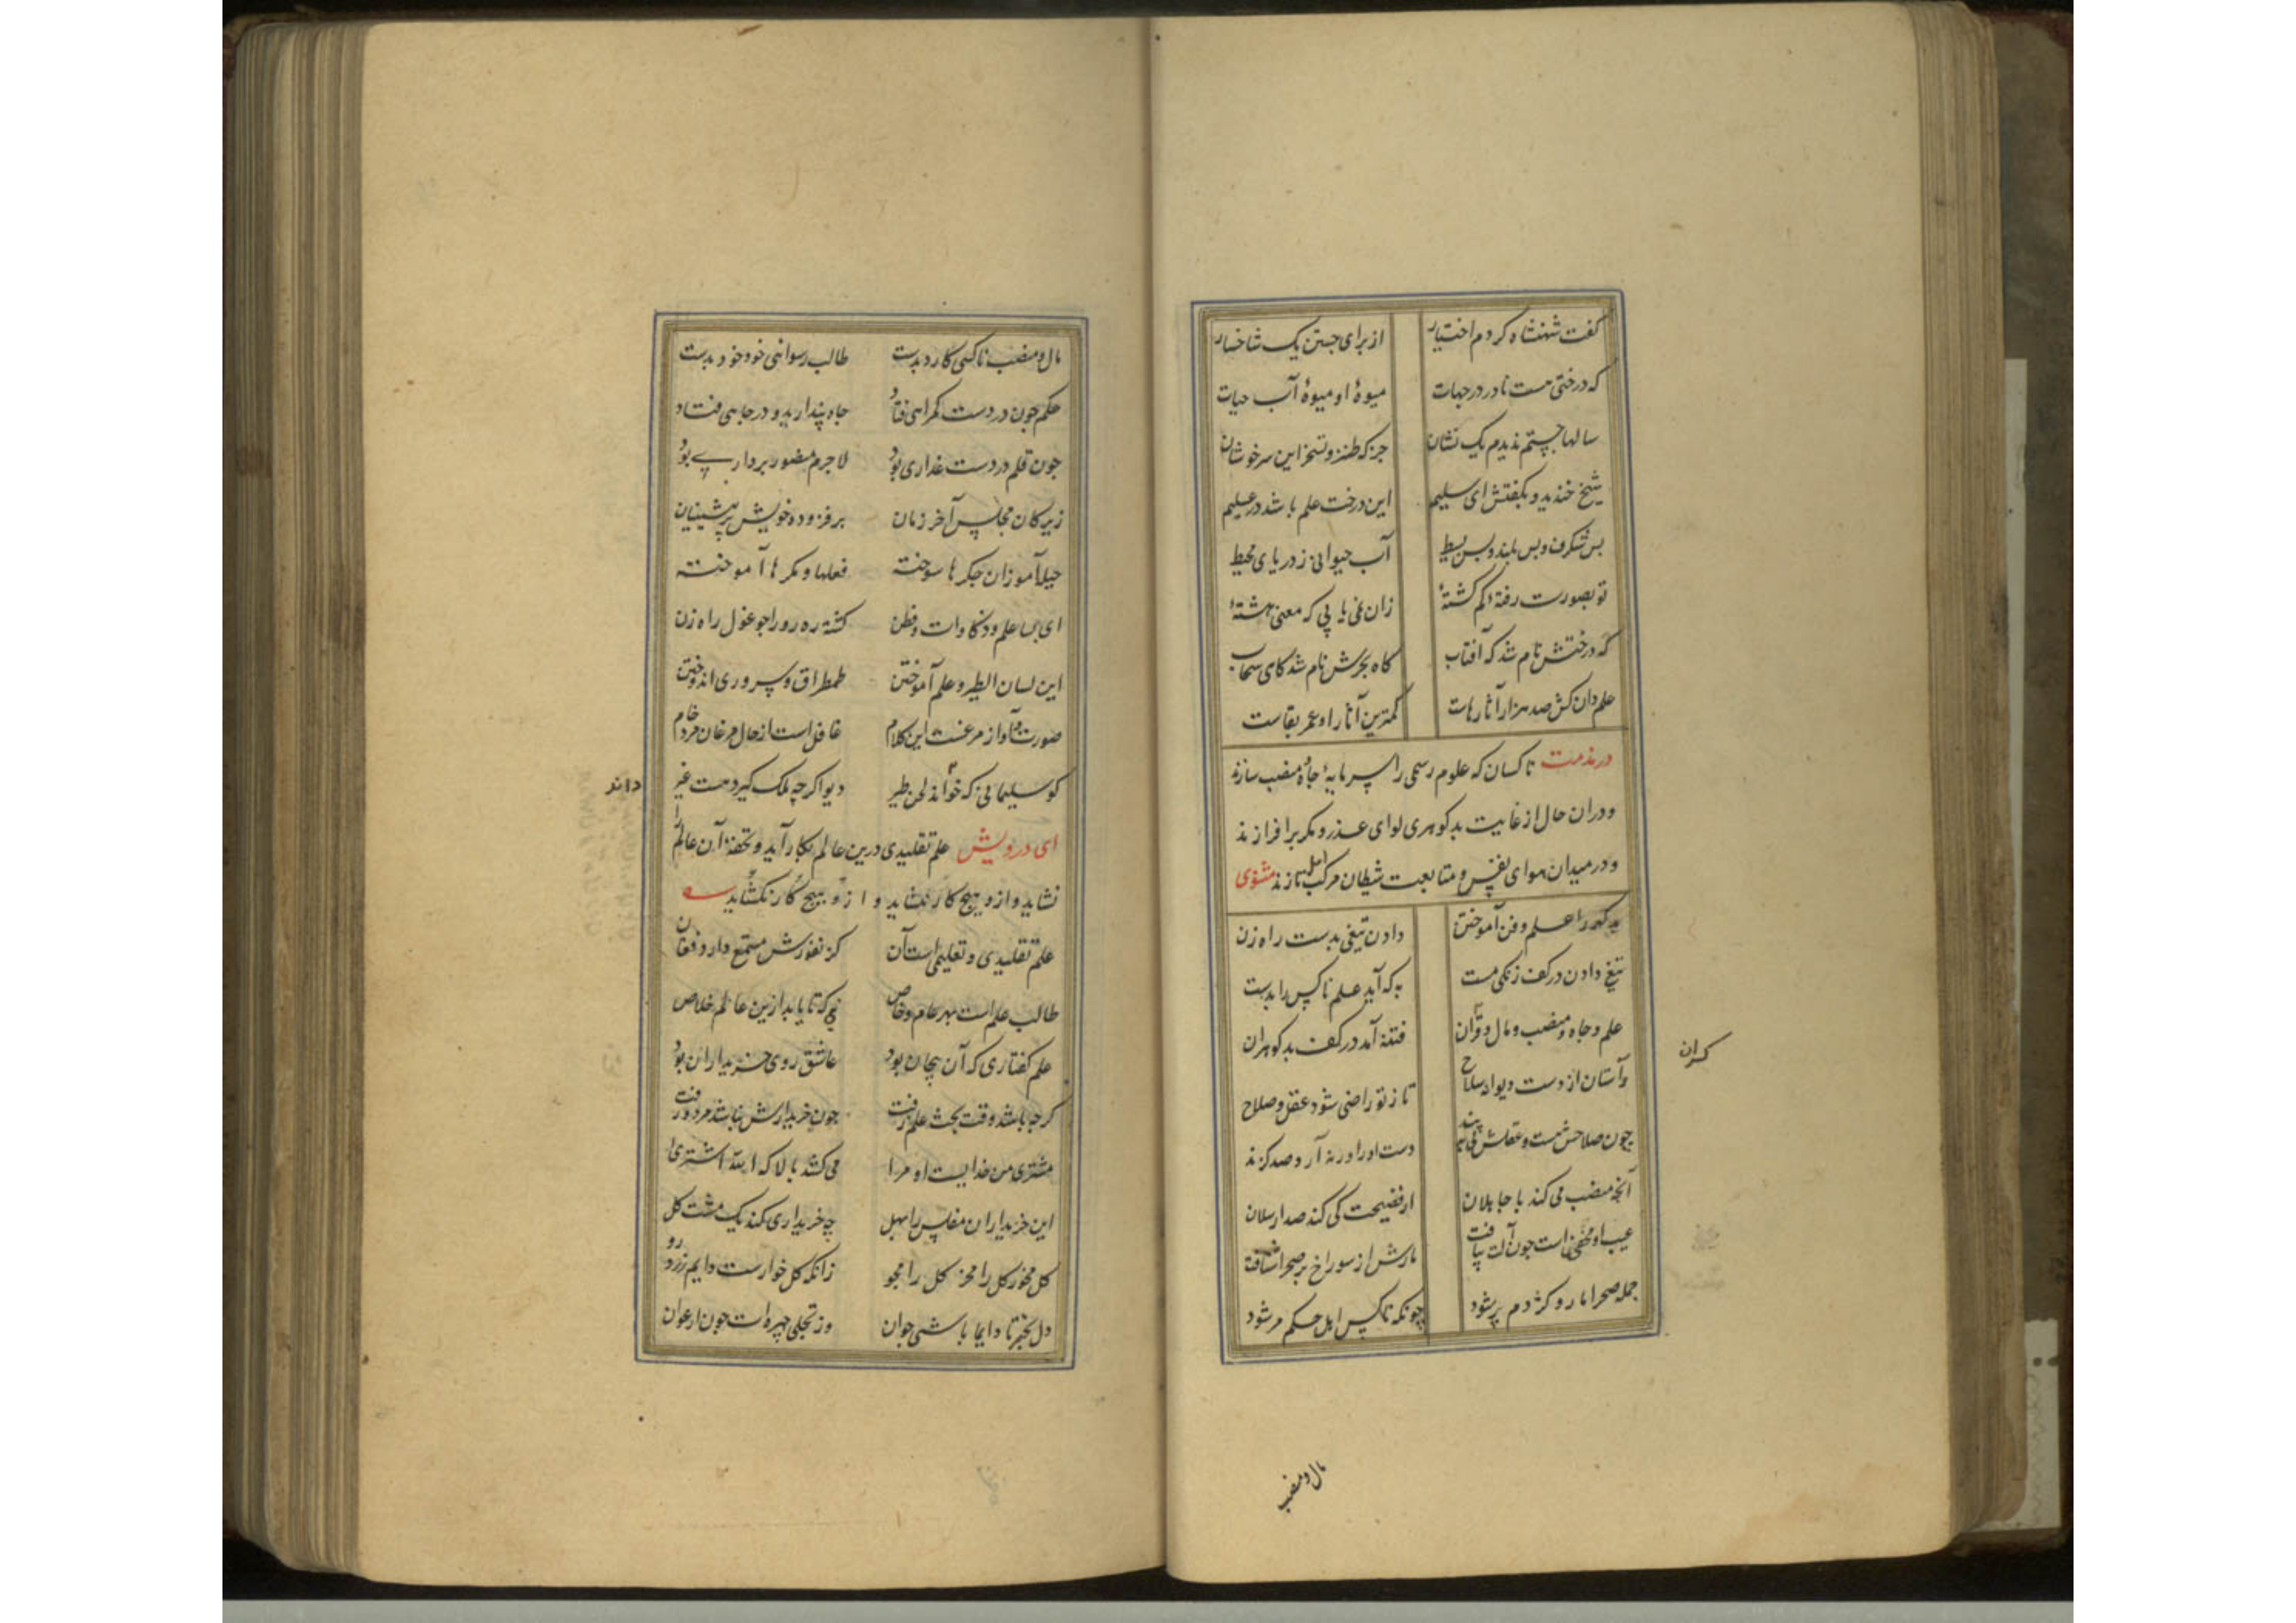 گفت شهنشاه کردم اختیار از برای جستن یک شاخسار
که درختی هست نادر در جهات میوهٔ او میوهٔ آب حیات
سالها جستم ندیدم یک نشان جز که طنز و تسخر این سرخوشان
شیخ خندید و بگفتش ای سلیم این درخت علم باشد در علیم
بس شگرف و بس بلند و بس بسیط آب حیوانی ز دریای محیط
تو بصورت رفتهٔ گم گشتهٔ زان نمی یابی که معنی هشتهٔ
که درختش نام شد که آفتاب کاه بحرش نام شد کاهی سحاب
علم دان کش صد هزار آثار هاست کمترین آثار او عمر بقاست
در مذمت ناکسان که علوم رسمی را سرمایهٔ جاه و منصب سازند
و دران حال از غایت بدکوهری لوای عذر و مکر برافرازند
و در میدان هوای نفس و متابعت شیطان مرکب امل تازند مثنوی
بدکهر را علم و فن آموختن دادن تیغی بدست راه زن
تیغ دادن در کف زنکی مست به که آید علم ناکس را بدست
علم و جاه و منصب و مال و قران فتنه آمد در کف بدکوهران
کران
وآستان از دست دیوانه سلاح تا ز تو راضی شود عقل و صلاح
چون صلاحش هست و عقلش نی ببند دست او را ورنه آرد صد کزند
آنچه منصب می کند با جاهلان از فضیحت کی کند صد ارسلان
عیب او مخفی است چون آلت بیافت مارش از سوراخ بر صحرا شتافت
جمله صحرا مار و کژدم پر شود چونکه ناکس اهل حکم مر شود
مال و منصب
مال و منصب ناکسی کارد بدست طالب رسوائی خود خود بدست
حکم چون در دست کمراهی فتاد جاه پندارید و در چاهی فتاد
چون قلم در دست غداری بود لاجرم منصور برداری بود
زیرکان مجلس آخر زمان برفزوده خویش بر پیشینیان
حیله آموزان جکرها سوخته فعلها و مکرها آموخته
ای بسا علم و ذکاوات و فطن کشته ره رو را چو غول راه زن
این لسان الطیر و علم آموختن طمطراق و سروری اندوختن
صورت و آواز مرغست این کلام غافل است از حال مرغان مرد خام
کو سلیمانی که خواند لحن طیر دیو اکرچه ملک کیرد هست غیر
داند
ای درویش علم تقلیدی درین عالم بکار آید و تحفه آن عالم را
نشاید و ازو هیچ کار نکشاید و ازو هیچ کار نکشاید
علم تقلیدی و تعلیمی است آن کز نفورش مستمع دارد فغان
طالب علم است بهر عام و خاص نی که تا یابد ازین عالم خلاص
علم کفتاری که آن بیجان بود عاشق روی خریداران بود
کرچه باشد وقت بحث علم زفت چون خریدارش نباشد مرد و رفت
مشتری من خدایست او مرا می کشد بالا که الله اشتری
این خریداران مفلس را بهل چه خریداری کند یک مشت کل
کل مخور کل را مخر کل را مجو زانکه کل خوارست دایم زرد رو
دل بخر تا دایما باشی جوان وز تجلی چهره ات چون ارغوان